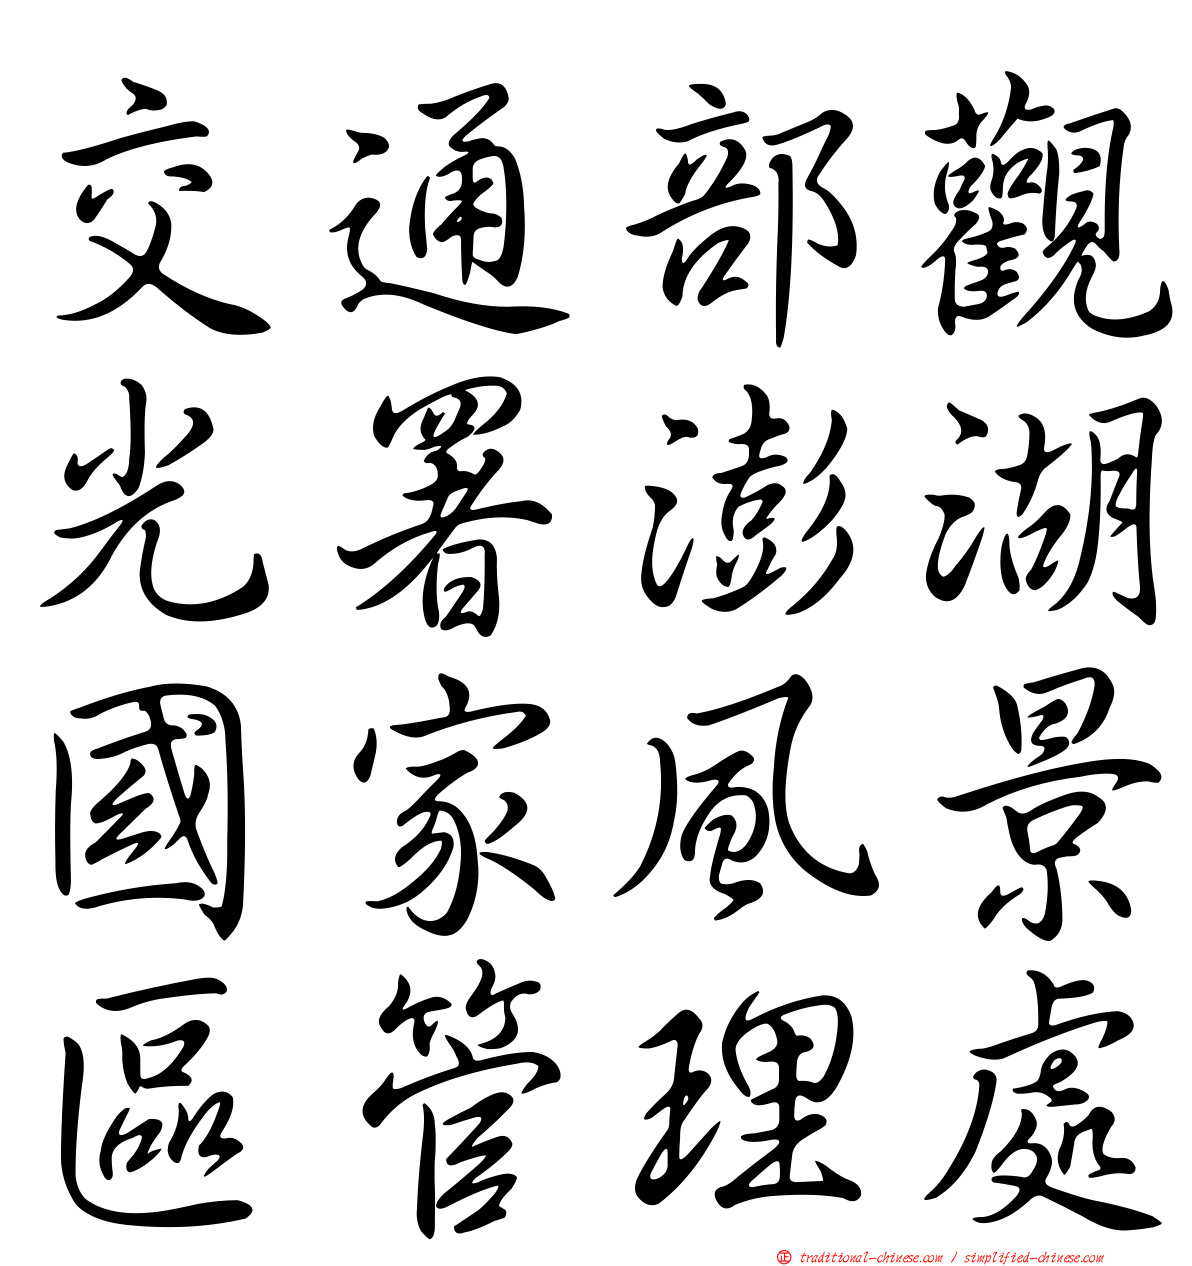 交通部觀
光署澎湖
國家風景
區管理處
正 traditional-chinese.com / simplified-chinese.com